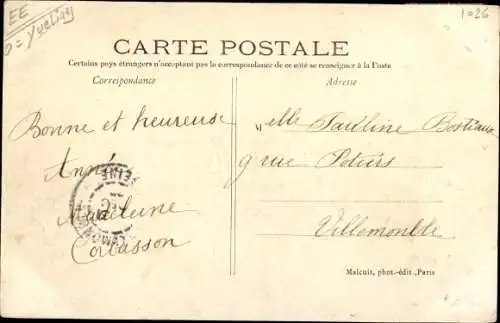 EE
1026
= Yvelines
CARTE POSTALE
Certains pays étrangers n'acceptant pas la correspondance de ce côté se renseigner à la Poste
Correspondance
Adresse
Bonne et heureuse
Année
Madeleine
Corbasson
Mlle Pauline
9 rue Potiers
Villemomble
Malcuit, phot.-édit., Paris